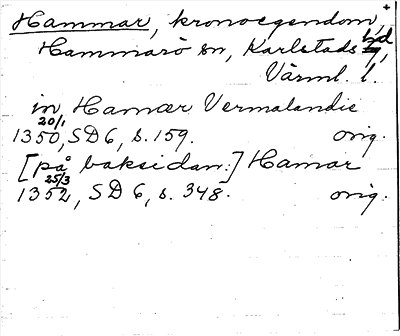 Hammar, kronoegendom, +
Hammarö sn, Karlstads hd,
Värml. l.
in Hamær Vermalandie
20/1
1350, SD 6, s. 159. orig.
[på baksidan:] Hamar
25/3
1352, SD 6, s. 348. orig.